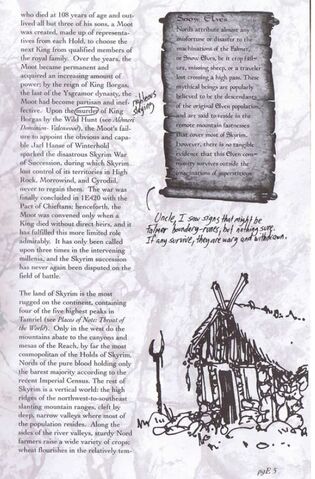 who died at 108 years of age and out-
lived all but three of his sons, a Moot
was created, made up of representa-
tives from each Hold, to choose the
next King from qualified members of
the royal family. Over the years, the
Moot became permanent and
acquired an increasing amount of
power; by the reign of King Borgas,
the last of the Ysgramor dynasty, the
Moot had become partisan and inef-
fective. Upon the murder of King
Borgas by the Wild Hunt (see Aldmeri
Dominion-Valenwood), the Moot's fail-
ure to appoint the obvious and capa-
ble Jarl Hanse of Winterhold
sparked the disastrous Skyrim War
of Succession, during which Skyrim
lost control of its territories in High
Rock, Morrowind, and Cyrodiil,
never to regain them. The war was
finally concluded in 1E420 with the
Pact of Chieftains; henceforth, the
Moot was convened only when a
King died without direct heirs, and it
has fulfilled this more limited role
admirably. It has only been called
upon three times in the intervening
millenia, and the Skyrim succession
has never again been disputed on the
field of battle.
The land of Skyrim is the most
rugged on the continent, containing
four of the five highest peaks in
Tamriel (see Places of Note: Throat of
the World). Only in the west do the
mountains abate to the canyons and
mesas of the Reach, by far the most
cosmopolitan of the Holds of Skyrim,
Nords of the pure blood holding only
the barest majority according to the
recent Imperial Census. The rest of
Skyrim is a vertical world: the high
ridges of the northwest-to-southeast
slanting mountain ranges, cleft by
deep, narrow valleys where most of
the population resides. Along the
sides of the river valleys, sturdy Nord
farmers raise a wide variety of crops;
wheat flourishes in the relatively tem-
Snow Elves
Nords attribute almost any
misfortune or disaster to the
machinations of the Falmer,
or Snow Elves, be it crop failure,
missing sheep, or a traveler
lost crossing a high pass. These
mythical beings are popularly
believed to be the descendants
of the original Elven population,
and are said to reside in the
remote mountain fastnesses
that cover most of Skyrim.
However, there is no tangible
evidence that this Elven com-
munity survives outside the
imaginations of superstitious
Uncle, I saw signs that might be
falmer boundary-runes, but nothing sure.
If any survive, they are wary and withdrawn.
pgE 5